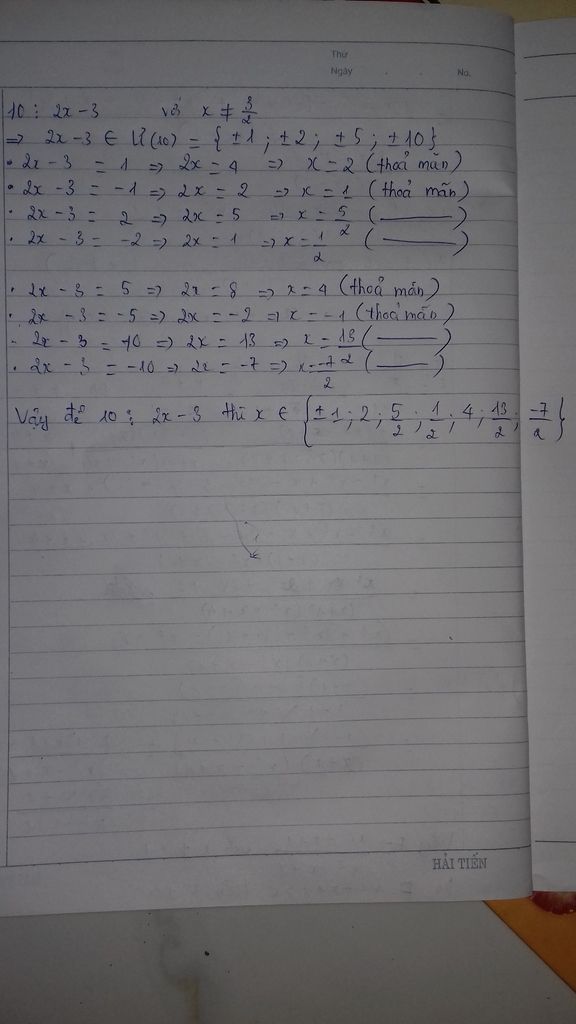 Thứ
Ngày . . No.
10 ⋮ 2x - 3 với x ≠ 3/2
=> 2x - 3 ∈ Ư(10) = { ±1 ; ±2 ; ±5 ; ±10 }
• 2x - 3 = 1 => 2x = 4 => x = 2 (thoả mãn)
• 2x - 3 = -1 => 2x = 2 => x = 1 (thoả mãn)
• 2x - 3 = 2 => 2x = 5 => x = 5/2 (———)
• 2x - 3 = -2 => 2x = 1 => x = 1/2 (———)
• 2x - 3 = 5 => 2x = 8 => x = 4 (thoả mãn)
• 2x - 3 = -5 => 2x = -2 => x = -1 (thoả mãn)
- 2x - 3 = 10 => 2x = 13 => x = 13/2 (———)
• 2x - 3 = -10 => 2x = -7 => x = -7/2 (———)
Vậy để 10 ⋮ 2x - 3 thì x ∈ { ±1 ; 2 ; 5/2 ; 1/2 ; 4 ; 13/2 ; -7/2 }
HẢI TIẾN